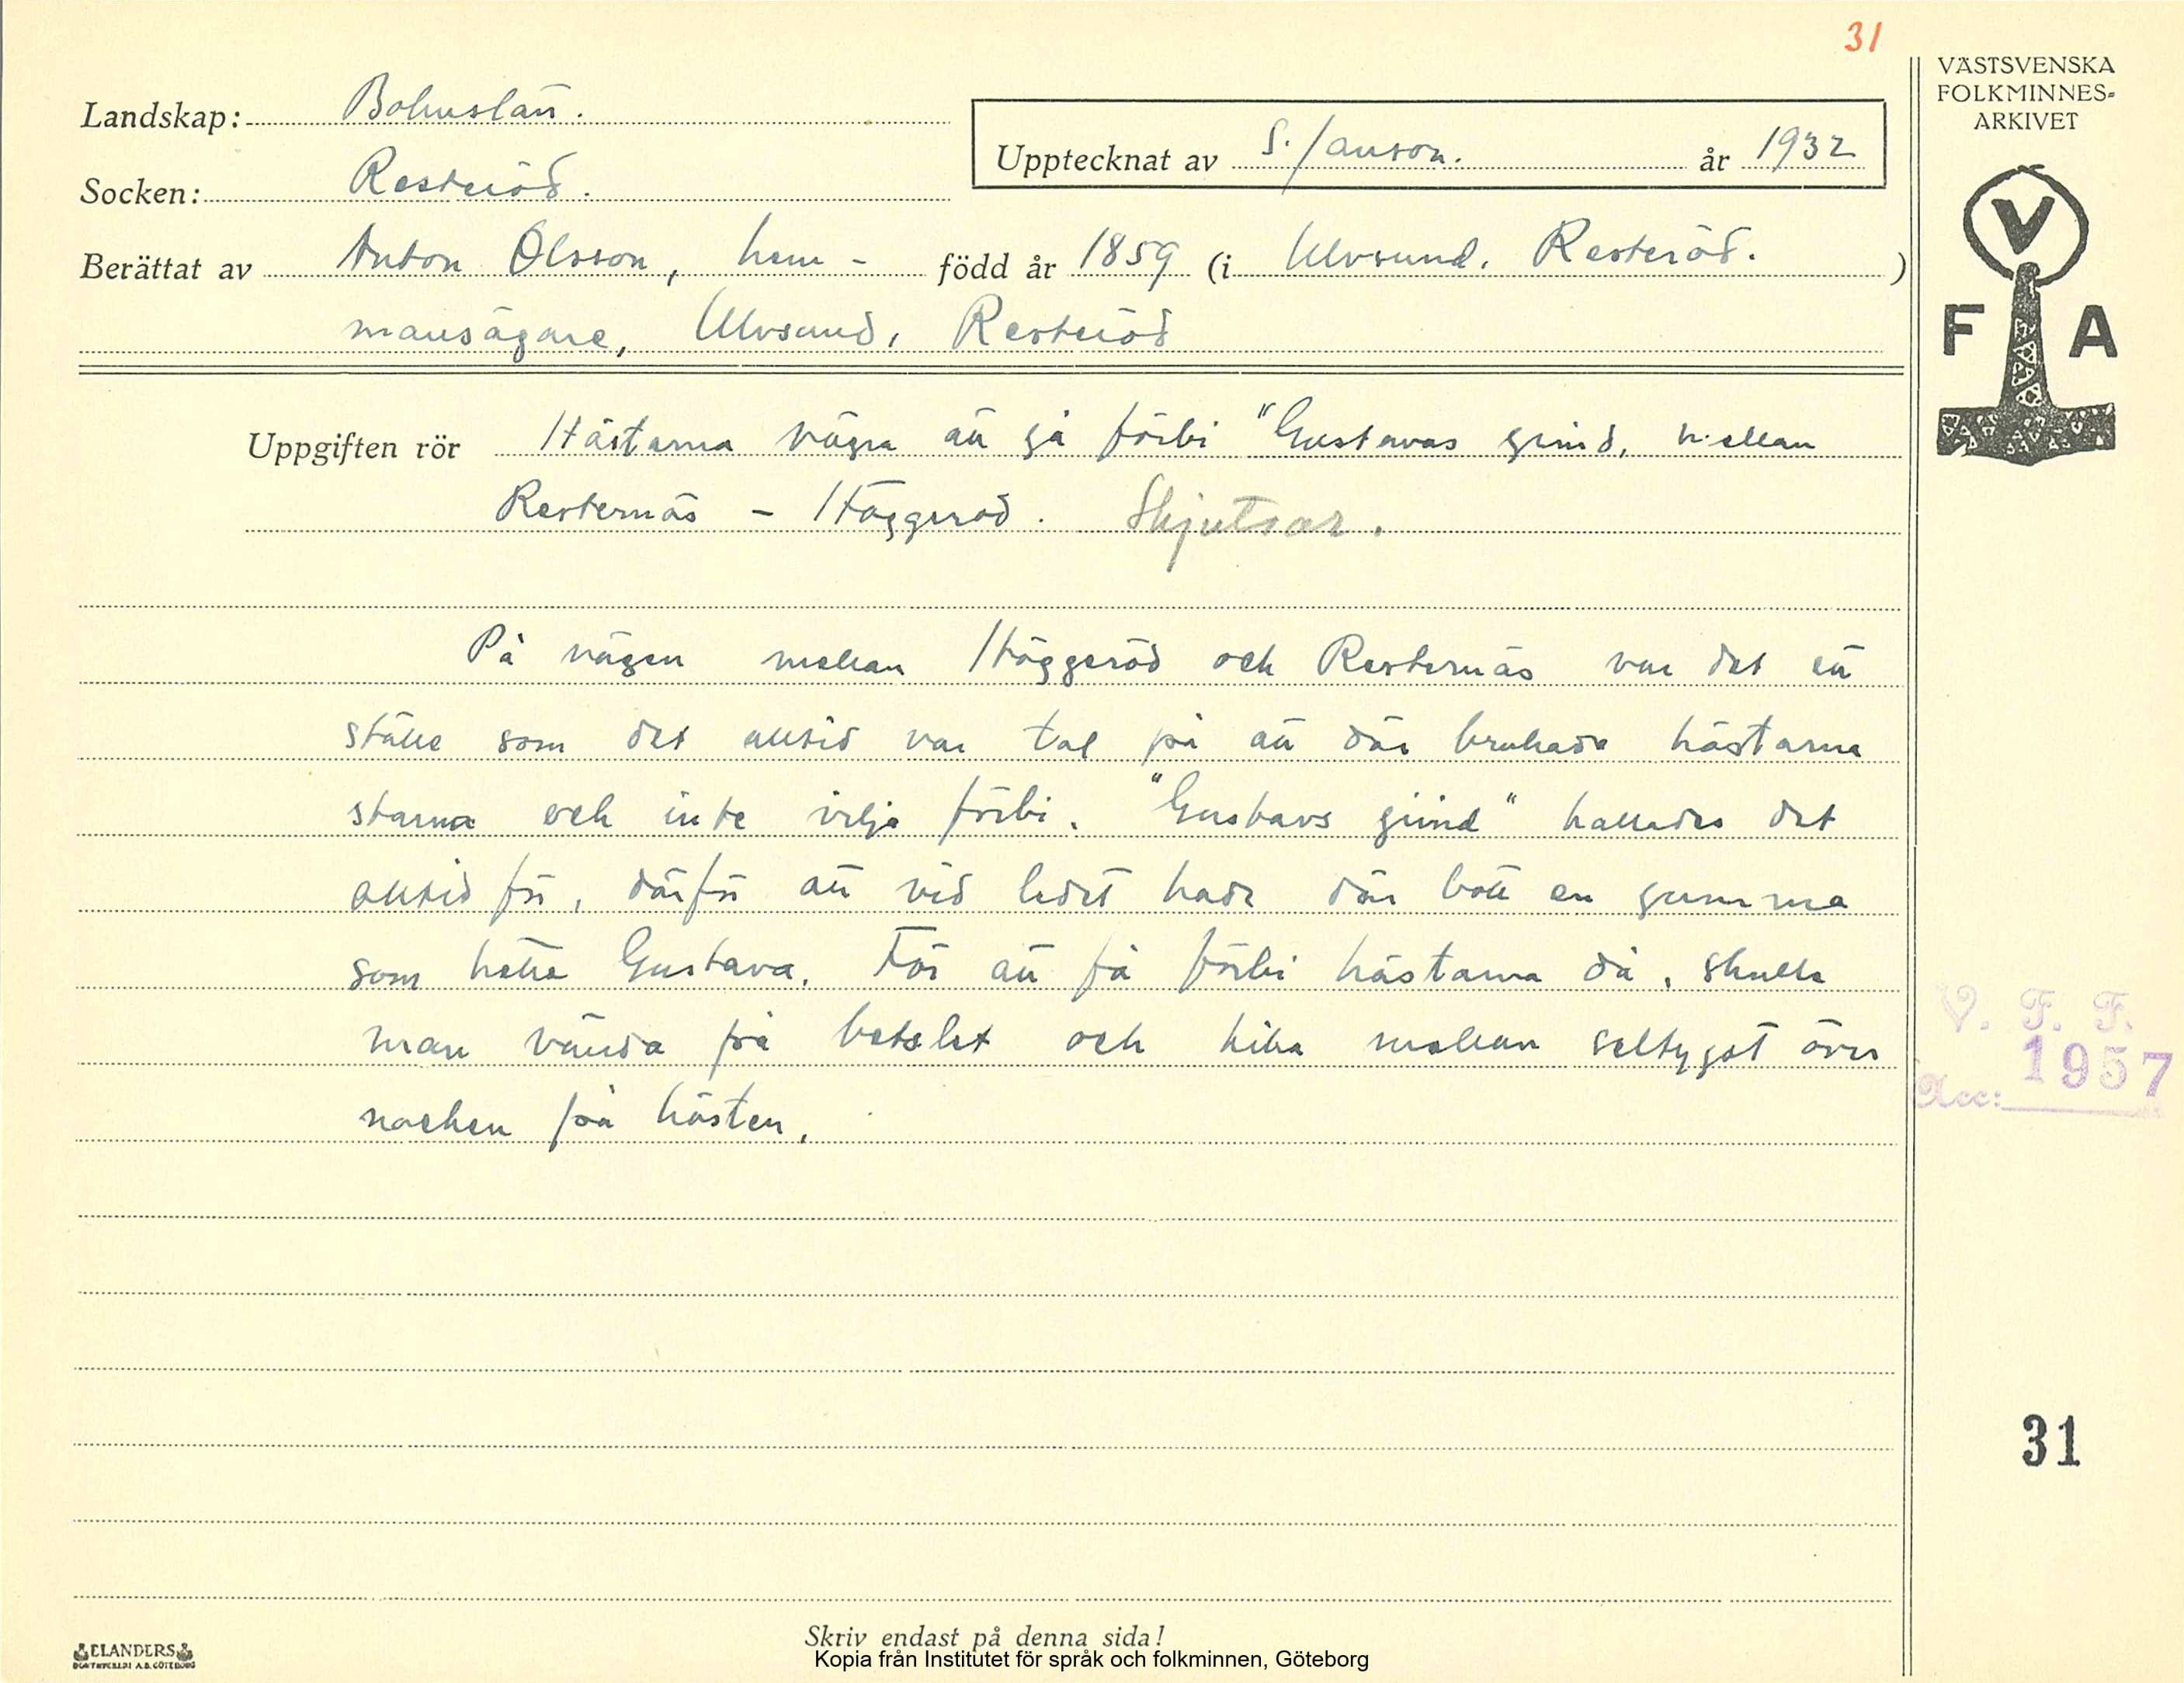 31
VÄSTSVENSKA
FOLKMINNES-
ARKIVET
V
F A
Landskap: Bohuslän.
Upptecknat av S. Janson. år 1932
Socken: Resteröd.
Berättat av Anton Olsson, hem- född år 1859 (i Ulvsund, Resteröd.)
mansägare, Ulvsund, Resteröd
Uppgiften rör Hästarna vägra att gå förbi "Gustavas grind, mellan
Resternäs - Häggeröd. Skjutsar.
På vägen mellan Häggeröd och Resternäs var det ett
ställe som det alltid var tal på att där brukade hästarna
stanna och inte vilja förbi. "Gustavs grind" kallades det
alltid för, därför att vid ledet hade där bott en gumma
som hette Gustava. För att få förbi hästarna då, skulle
man vända på betslet och kika mellan seltyget över
nacken på hästen.
V. F. F.
1957
Acc:
31
Skriv endast på denna sida!
Kopia från Institutet för språk och folkminnen, Göteborg
ELANDERS
BOKTRYCKERI A.B. GÖTEBORG